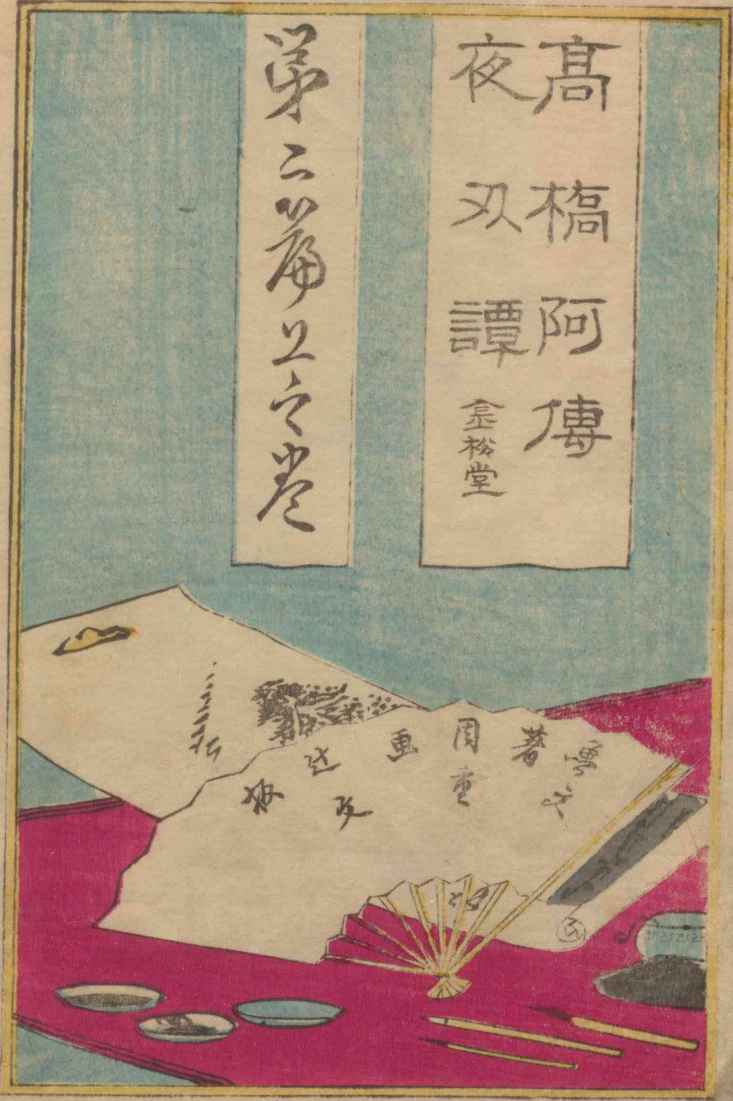 高橋阿傳
夜刄譚 金松堂
第二篇上之巻
魯文
著
周重
画
辻文
板